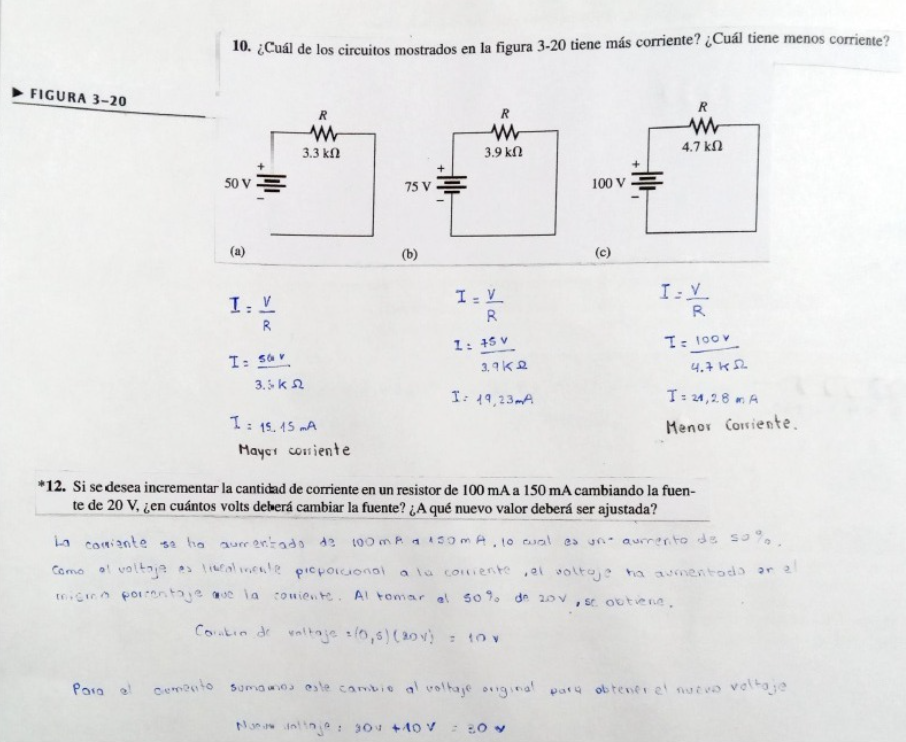 10. ¿Cuál de los circuitos mostrados en la figura 3-20 tiene más corriente? ¿Cuál tiene menos corriente?
▶ FIGURA 3–20
R R R
3.3 kΩ 3.9 kΩ 4.7 kΩ
+ + +
50 V 75 V 100 V
– – –
(a) (b) (c)
I = V/R I = V/R I = V/R
I = 50 V / 3.3 K Ω I = 75 V / 3.9 K Ω I = 100 V / 4.7 K Ω
I = 15.15 mA I = 19,23 mA I = 21,28 mA
Mayor corriente Menor Corriente.
*12. Si se desea incrementar la cantidad de corriente en un resistor de 100 mA a 150 mA cambiando la fuen-
te de 20 V, ¿en cuántos volts deberá cambiar la fuente? ¿A qué nuevo valor deberá ser ajustada?
La corriente se ha aumentado de 100 mA a 150 mA, lo cual es un aumento de 50%.
Como el voltaje es linealmente proporcional a la corriente, el voltaje ha aumentado en el
mismo porcentaje que la corriente. Al tomar el 50% de 20V, se obtiene.
Cambio de voltaje = (0,5)(20V) = 10 V
Para el sumamos este cambio al voltaje original para obtener el nuevo voltaje
Nuevo voltaje = 20V + 10V = 30 V